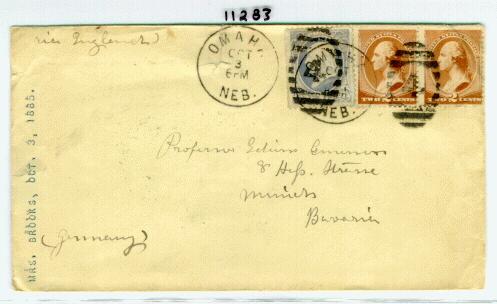 11283
via England
OMAHA
OCT
3
6PM
NEB.
NEB.
TWO 2 CENTS
TWO 2 CENTS
MRS. BROOKS, OCT. 3, 1885.
Professor
8 Hess Strasse
Munich
Bavaria
(Germany)